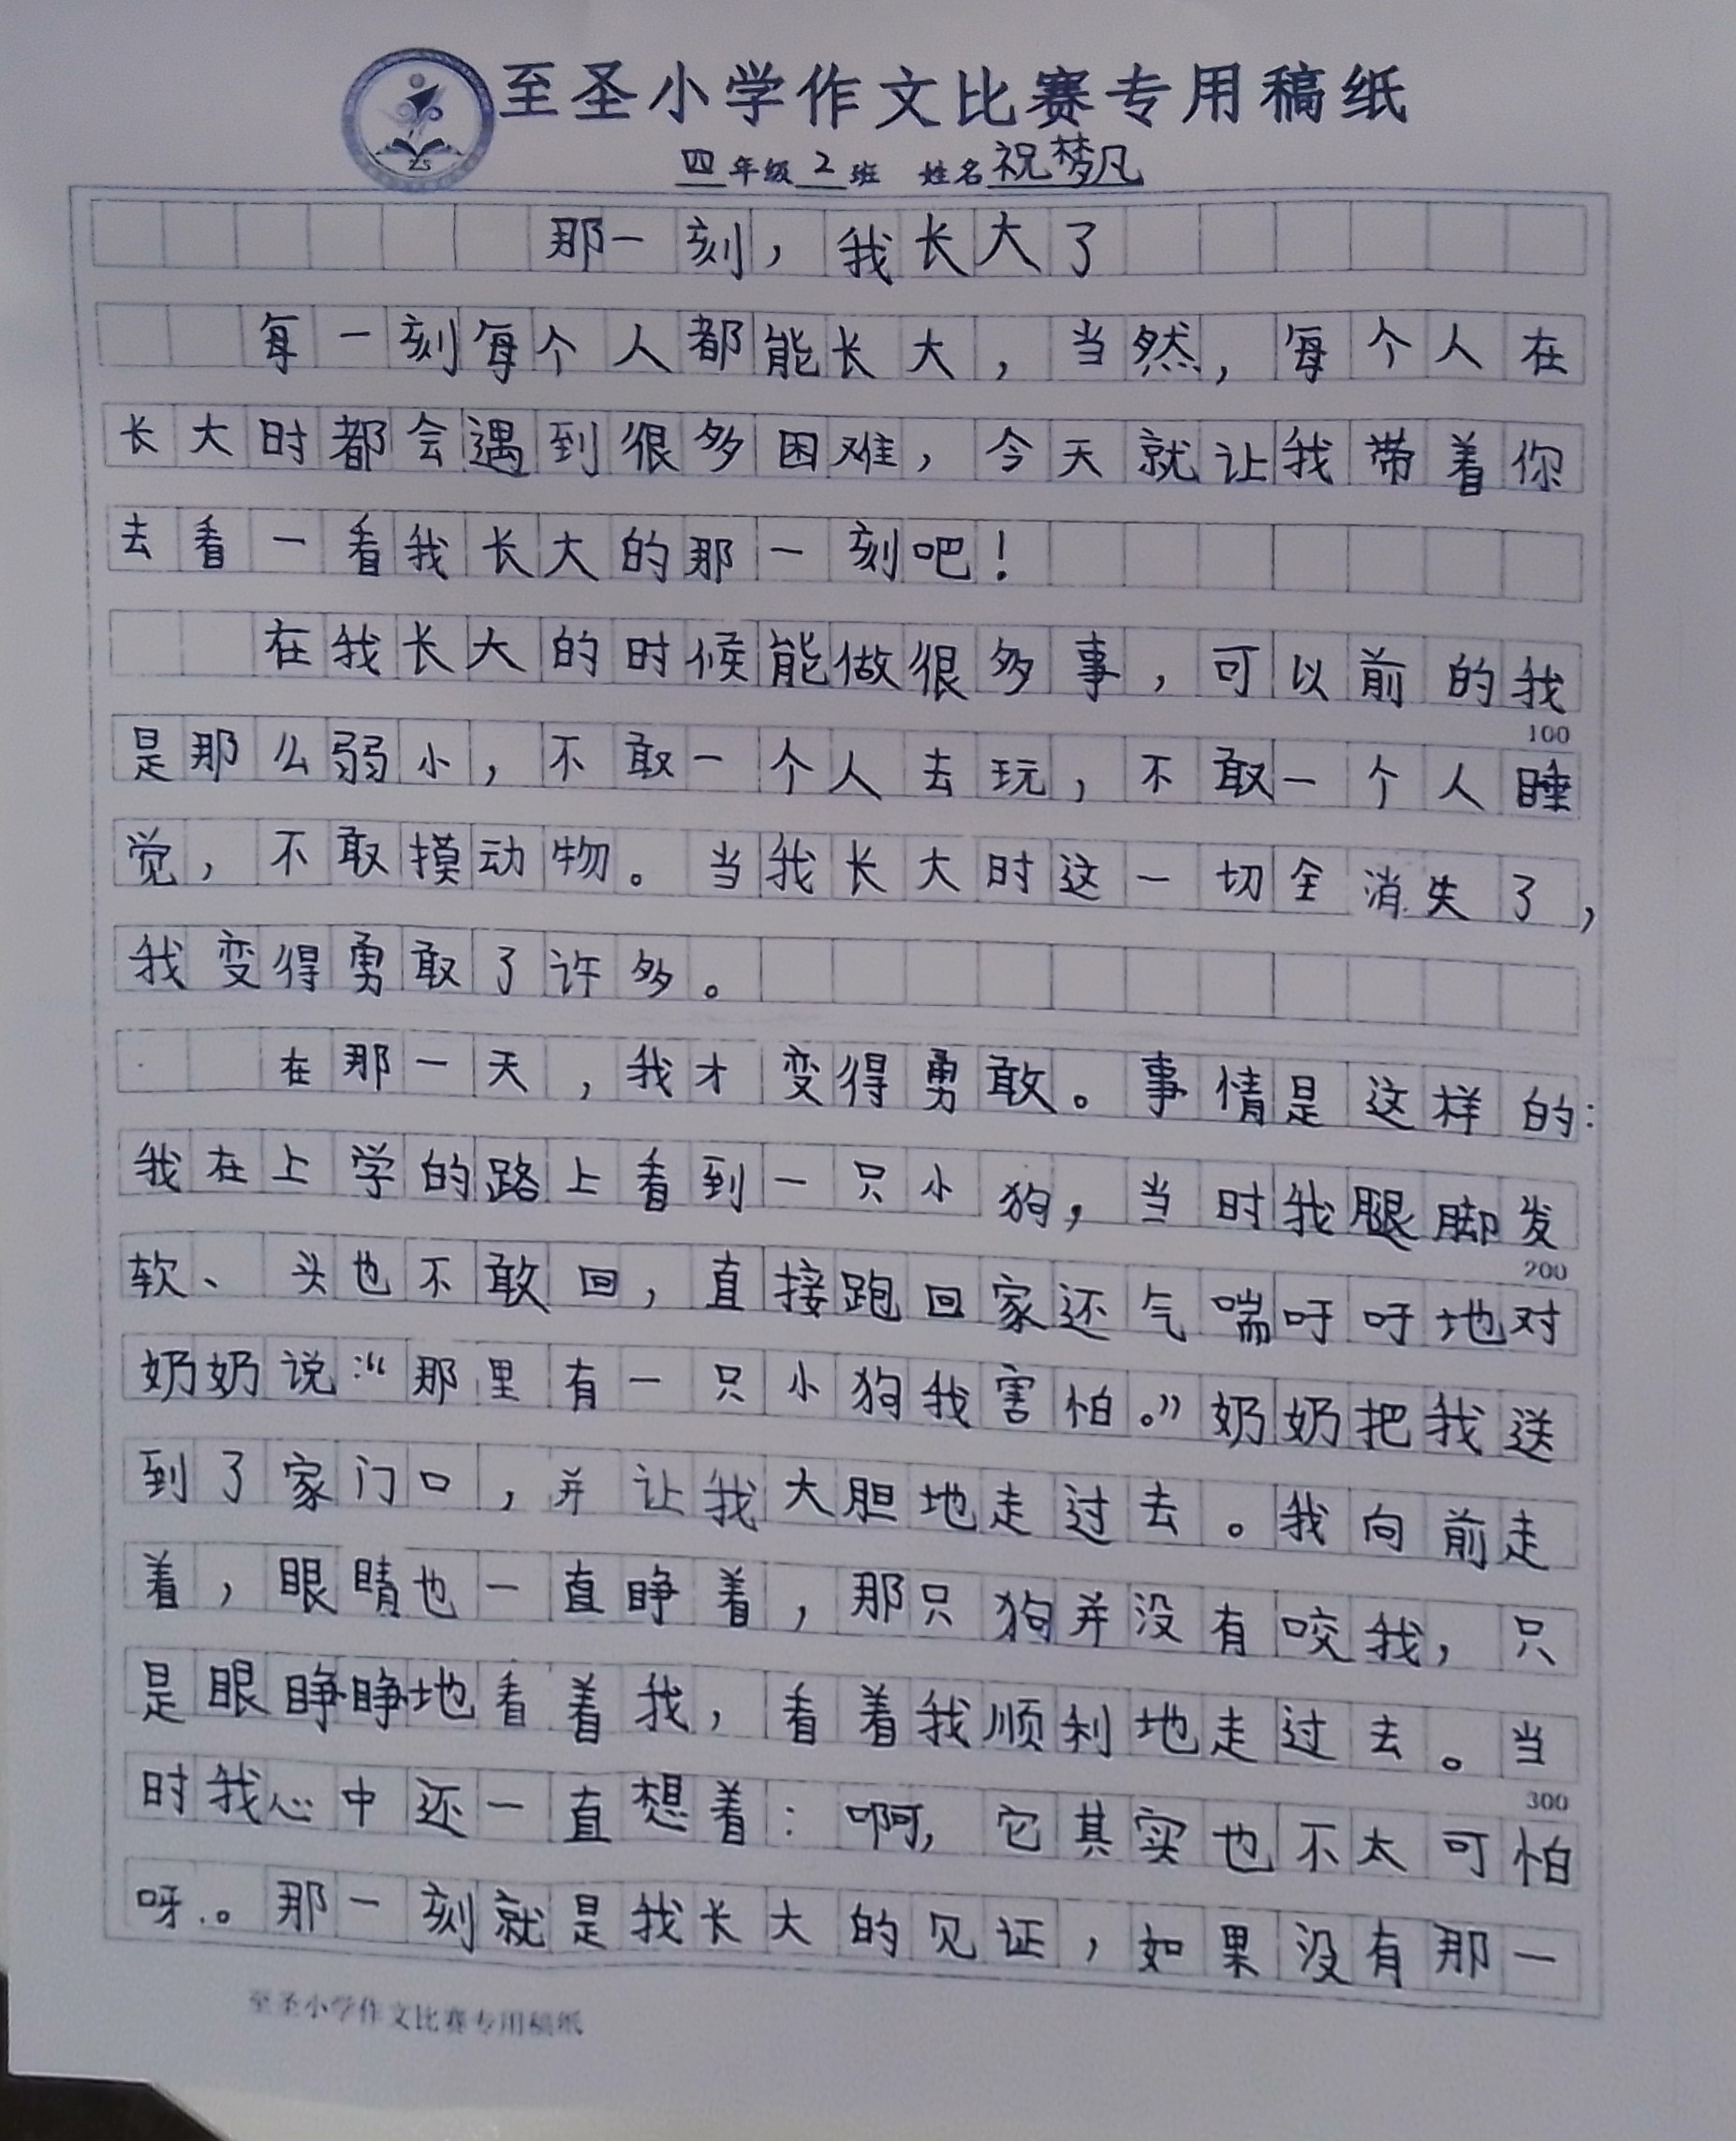 至圣小学作文比赛专用稿纸
ZS
四年级2班 姓名祝梦凡
那一刻，我长大了
每一刻每个人都能长大，当然，每个人在
长大时都会遇到很多困难，今天就让我带着你
去看一看我长大的那一刻吧！
在我长大的时候能做很多事，可以前的我
100
是那么弱小，不敢一个人去玩，不敢一个人睡
觉，不敢摸动物。当我长大时这一切全消失了，
我变得勇敢了许多。
在那一天，我才变得勇敢。事情是这样的：
我在上学的路上看到一只小狗，当时我腿脚发
200
软、头也不敢回，直接跑回家还气喘吁吁地对
奶奶说：“那里有一只小狗我害怕。”奶奶把我送
到了家门口，并让我大胆地走过去。我向前走
着，眼睛也一直睁着，那只狗并没有咬我，只
是眼睁睁地看着我，看着我顺利地走过去。当
300
时我心中还一直想着：啊，它其实也不太可怕
呀。那一刻就是我长大的见证，如果没有那一
至圣小学作文比赛专用稿纸